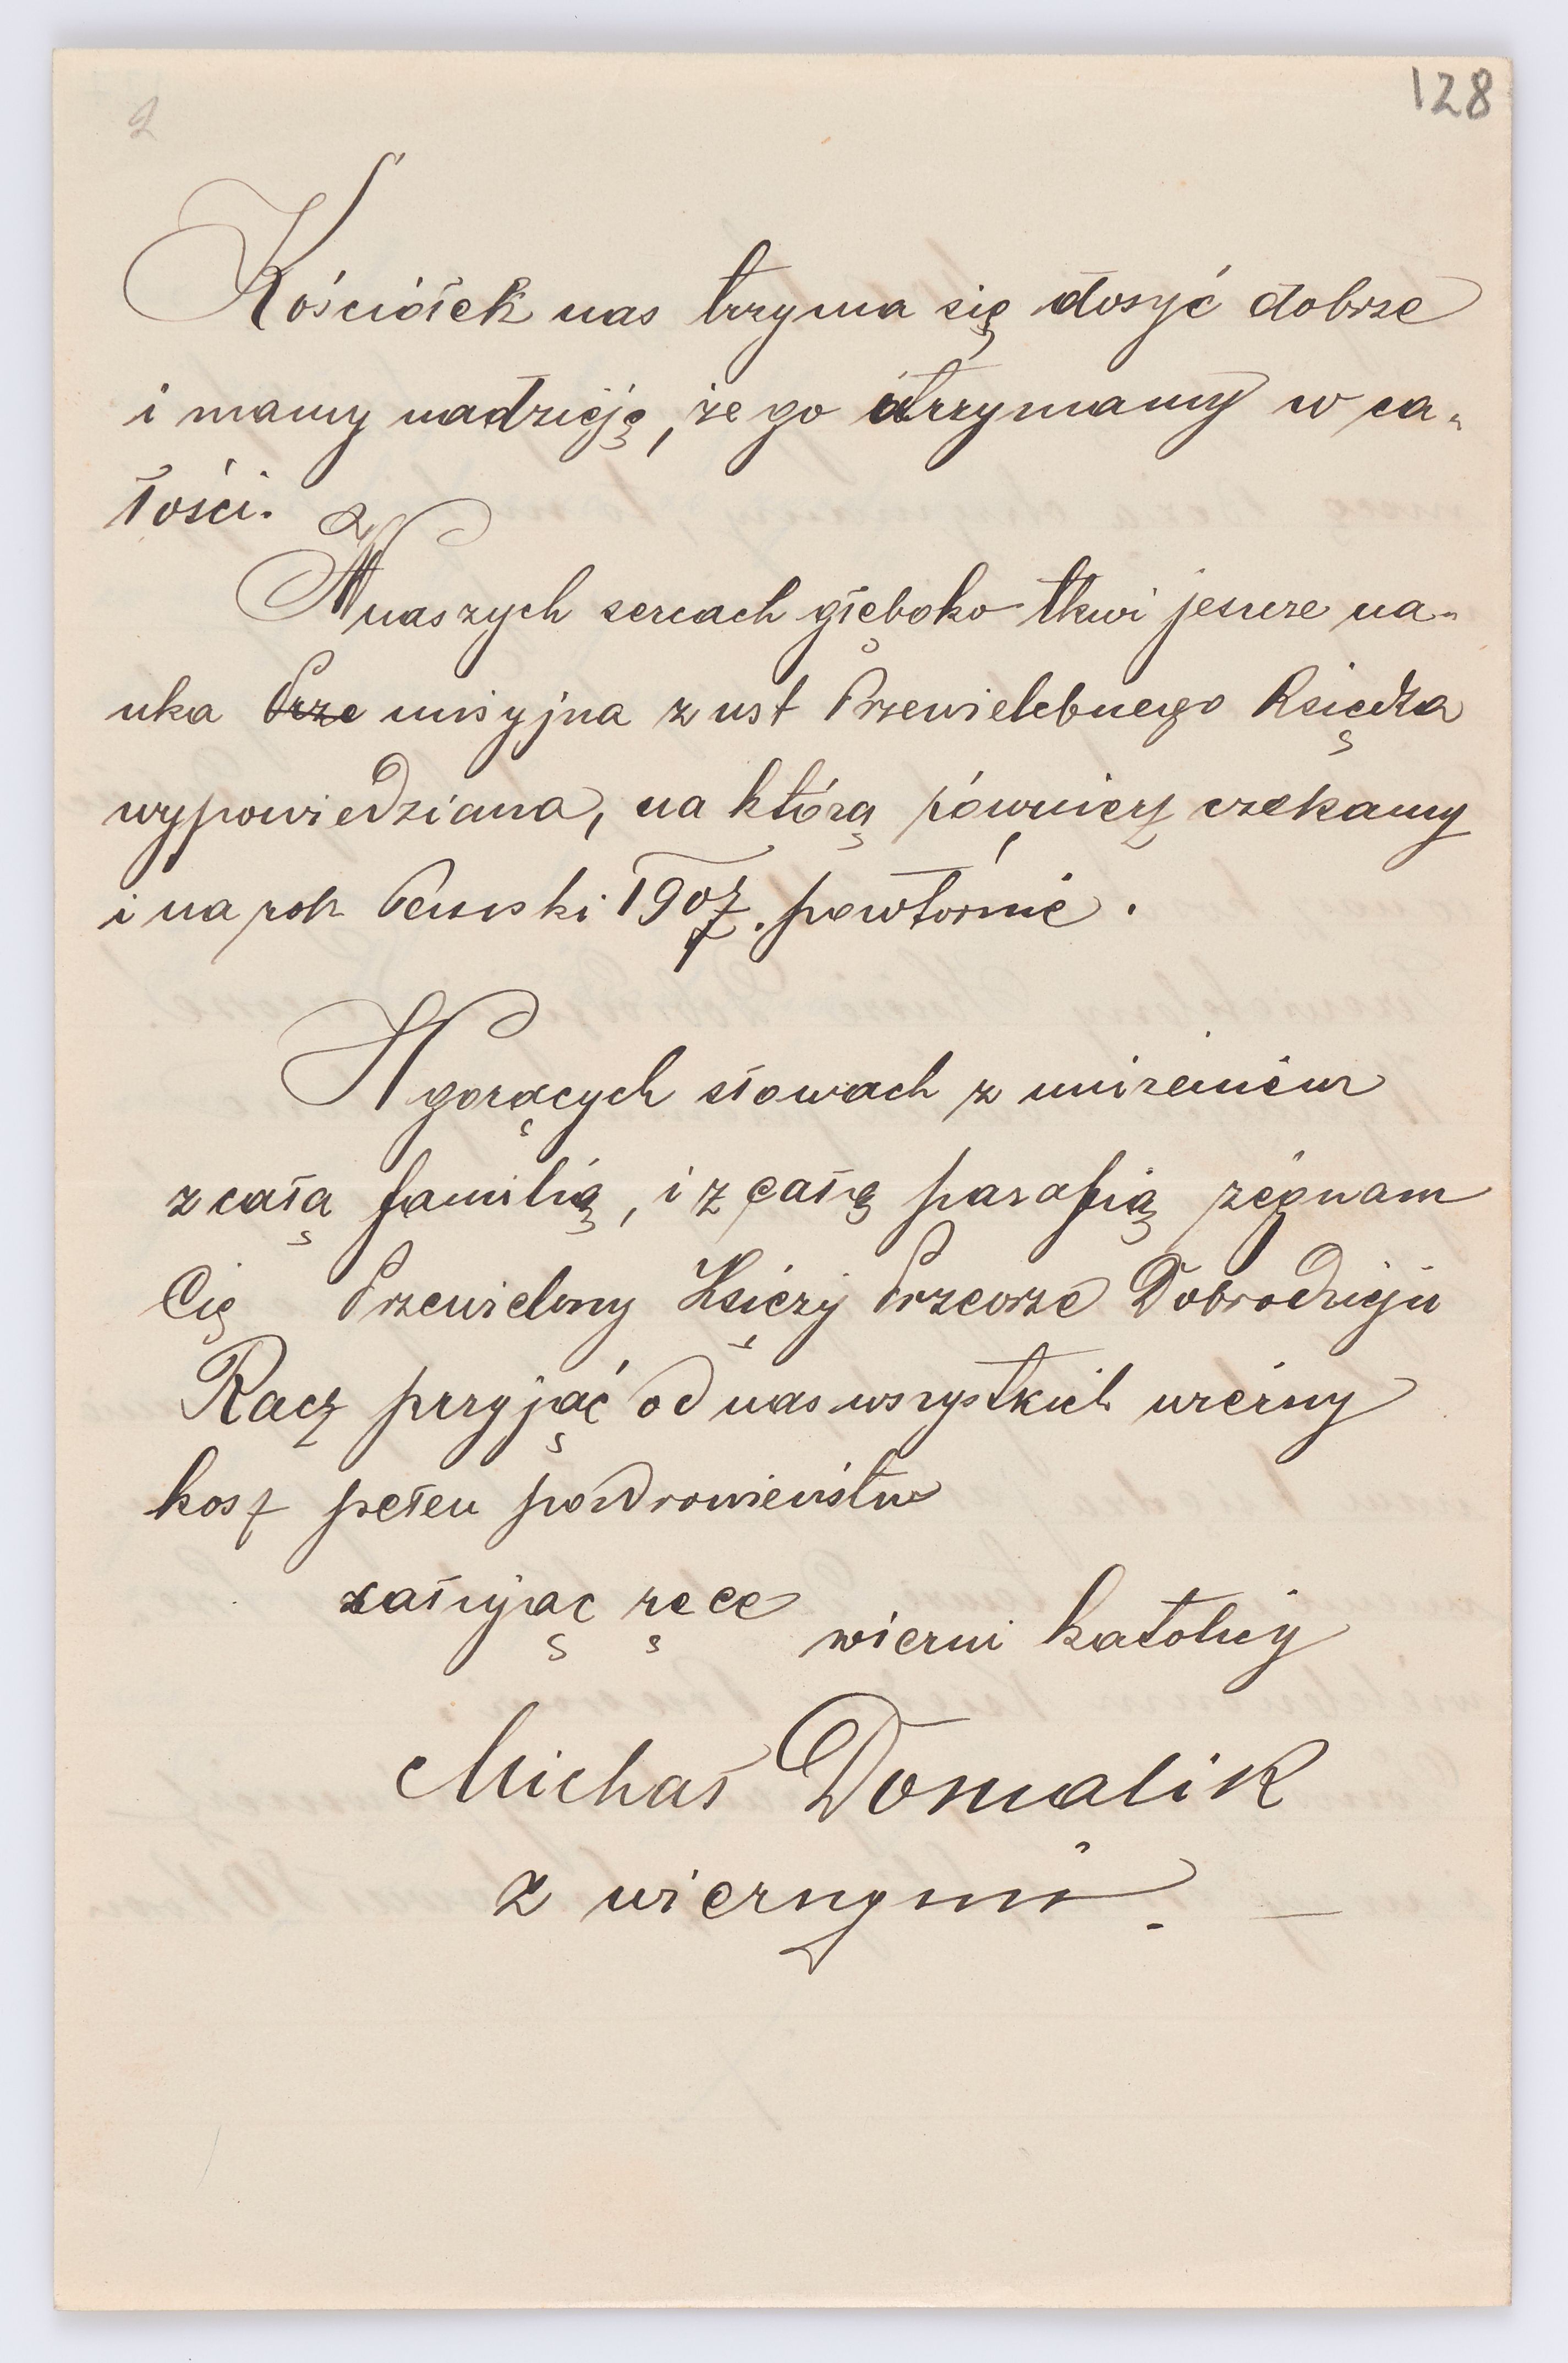 128
2
Kościółek nas trzyma się dosyć dobrze
i mamy nadzieję, że go utrzymamy w ca-
łości.
W naszych sercach głęboko tkwi jeszcze na-
uka Prze misyjna z ust Przewielebnego Księdza
wypowiedziana, na którą również czekamy
i na rok 1907. powtórnie.
W gorących słowach z uniżeniem
z całą familią, i z całą parafią żegnam
Cię Przewielbny Księży Przeorze Dobrodzieju
Racz przyjąć od nas wszystkich
kosz pełen pozdrowieństw
całując ręce
wierni katolicy
Michał Domalik
z wiernymi.